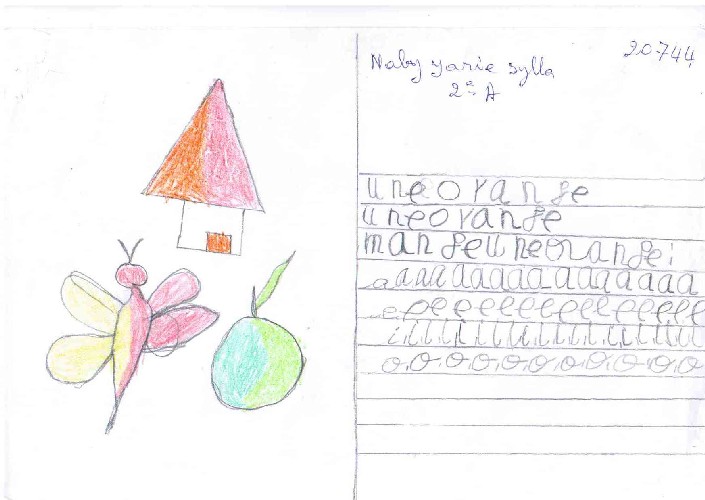 20744
Naby yarie sylla
2e A
uneorange
uneorange
mangeuneorangei
aaaaaaaaaaaaaaa
eeeeeeeeeeeeeee
iiiiiiiiiiiiiiiiii
ooooooooooo